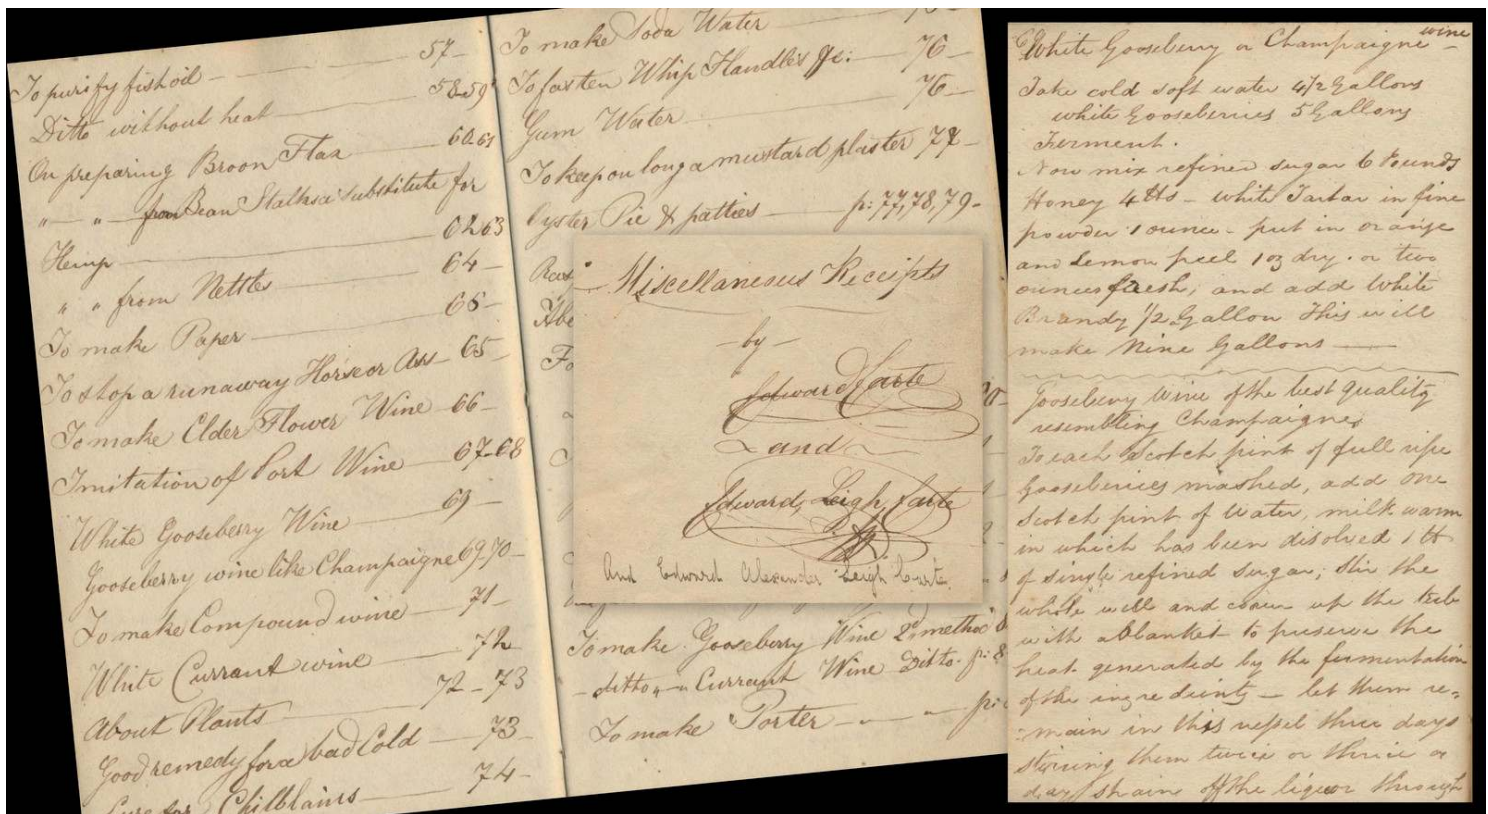 57-
To purify fish oil
58-59
Ditto without heat
60.61
On preparing Broon Flax
" " from Bean Stalks a substitute for
Hemp 62 63
" " from Nettles 64-
To make Paper 65-
To stop a runaway Horse or Ass 65-
To make Elder Flower Wine 66-
Imitation of Port Wine 67-68
White Gooseberry Wine 69-
Gooseberry wine like Champaigne 69.70-
To make Compound wine 71-
White Currant wine 72
About Plants 72-73
Good remedy for a bad Cold 73-
Cure for Chilblains 74-
To make Soda Water
To fasten Whip Handles &c: 76-
Gum Water 76-
To keep on long a mustard plaster 77-
Oyster Pie & patties p: 77,78,79-
To make Gooseberry Wine 2d method
- ditto " " Currant Wine Ditto. p: 8
To make Porter p:
Miscellaneous Receipts
- by -
Edward Carte
and
Edward, Leigh, Carte
And Edward Alexander Leigh Carte
White Gooseberry or Champaigne wine
Take cold soft water 4 1/2 Gallons
white Gooseberries 5 Gallons
Ferment.
Now mix refined sugar 6 Pounds
Honey 4 lbs - white Tartar in fine
powder 1 ounce - put in orange
and Lemon peel 1 oz dry. or two
ounces fresh; and add White
Brandy 1/2 Gallon This will
make Nine Gallons
Gooseberry Wine of the best quality
resembling Champaigne
To each Scotch pint of full ripe
Gooseberries mashed, add one
Scotch pint of Water, milk warm
in which has been disolved 1 lb
of single refined sugar; stir the
whole well and cover up the tub
with a Blanket to preserve the
heat generated by the fermentation
of the ingredients - let them re=
=main in this vessel three days
stirring them twice or thrice a
day strain off the liquor through